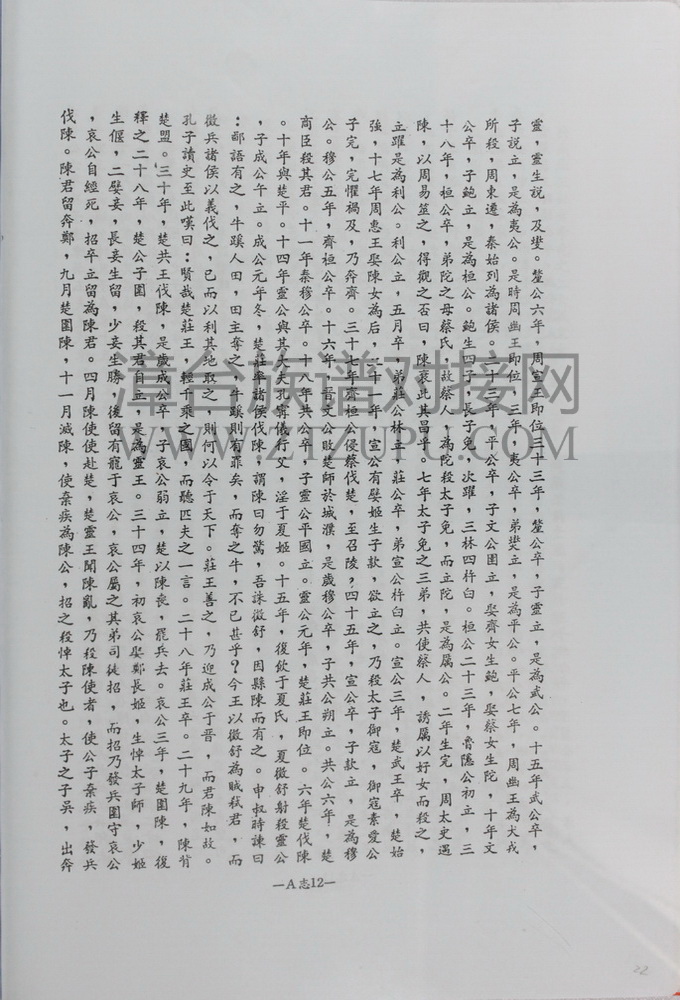 靈，靈生說，及燮。釐公六年，周宣王即位三十三年，釐公卒，子靈立，是為武公。十五年武公卒，
子說立，是為夷公。是時周幽王即位，三年，夷公卒，弟燮立，是為平公。平公七年，周幽王為犬戎
所殺，周東遷，秦始列為諸侯。二十三年，平公卒，子文公圉立，娶齊女生鮑，娶蔡女生陀，十年文
公卒，子鮑立，是為桓公。鮑生四子，長子免，次躍，三林四杵臼。桓公二十三年，魯隱公初立，三
十八年，桓公卒，弟陀之母蔡氏，故蔡人，為陀殺太子免，而立陀，是為厲公。二年生完，周太史過
陳，以周易筮之，得觀之否曰，陳衰此其昌乎。七年太子免之三弟，共使蔡人，誘厲以好女而殺之，
立躍是為利公。利公立，五月卒，弟莊公林立，莊公卒，弟宣公杵臼立。宣公三年，楚武王卒，楚始
強，十七年周惠王娶陳女為后，二十一年，宣公有嬖姬生子款，欲立之，乃殺太子御寇，御寇素愛公
子完，完懼禍及，乃奔齊。三十七年齊桓公侵蔡伐楚，至召陵？四十五年，宣公卒，子款立，是為穆
公。穆公五年，齊桓公卒。十六年，晉文公敗楚師於城濮，是歲穆公卒，子共公朔立。共公六年，楚
商臣殺其君。十一年秦穆公卒。十八年共公卒，子靈公平國立。靈公元年，楚莊王即位。六年楚伐陳
。十年與楚平。十四年靈公與其大夫孔寗儀行父，淫于夏姬。十五年，復飲于夏氏，夏徵舒射殺靈公
，子成公午立。成公元年冬，楚莊率諸侯伐陳，謂陳曰勿驚，吾誅徵舒，因縣陳而有之。申叔時諫曰
：鄙語有之，牛蹊人田，田主奪之，牛蹊則有罪矣，而奪之牛，不已甚乎？今王以徵舒為賊殺君，而
徵兵諸侯以義伐之，已而以利其地取之，則何以令于天下。莊王善之，乃迎成公于晉，而君陳如故。
孔子讀史至此嘆曰：賢哉楚莊王，輕千乘之國，而聽匹夫之一言。二十八年莊王卒。二十九年，陳背
楚盟。三十年，楚共王伐陳，是歲成公卒，子哀公弱立，楚以陳喪，罷兵去。哀公三年，楚圍陳，復
釋之二十八年，楚公子圍，殺其君自立，是為靈王。三十四年，初哀公娶鄭長姬，生悼太子師，少姬
生偃，二嬖妾，長妾生留，少妾生勝，後留有寵于哀公，哀公屬之其弟司徒招，而招乃發兵圍守哀公
，哀公自經死，招卒立留為陳君。四月陳使使赴楚，楚靈王聞陳亂，乃殺陳使者，使公子棄疾，發兵
伐陳。陳君留奔鄭，九月楚圍陳，十一月滅陳，使棄疾為陳公，招之殺悼太子也。太子之子吳，出奔
—A志12—
漳台族谱对接网
WWW.ZTZUPU.COM
22